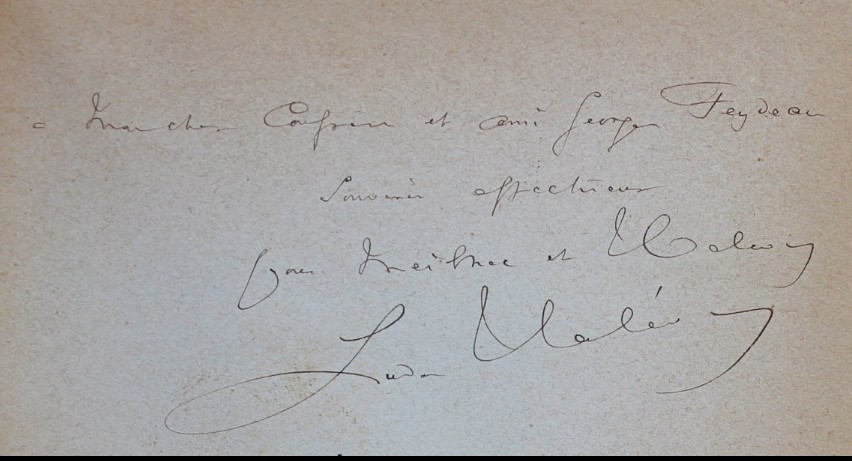 a mon cher Confrère et ami Georges Feydeau
Souvenir affectueux
pour Meilhac et Halévy
Ludov Halévy